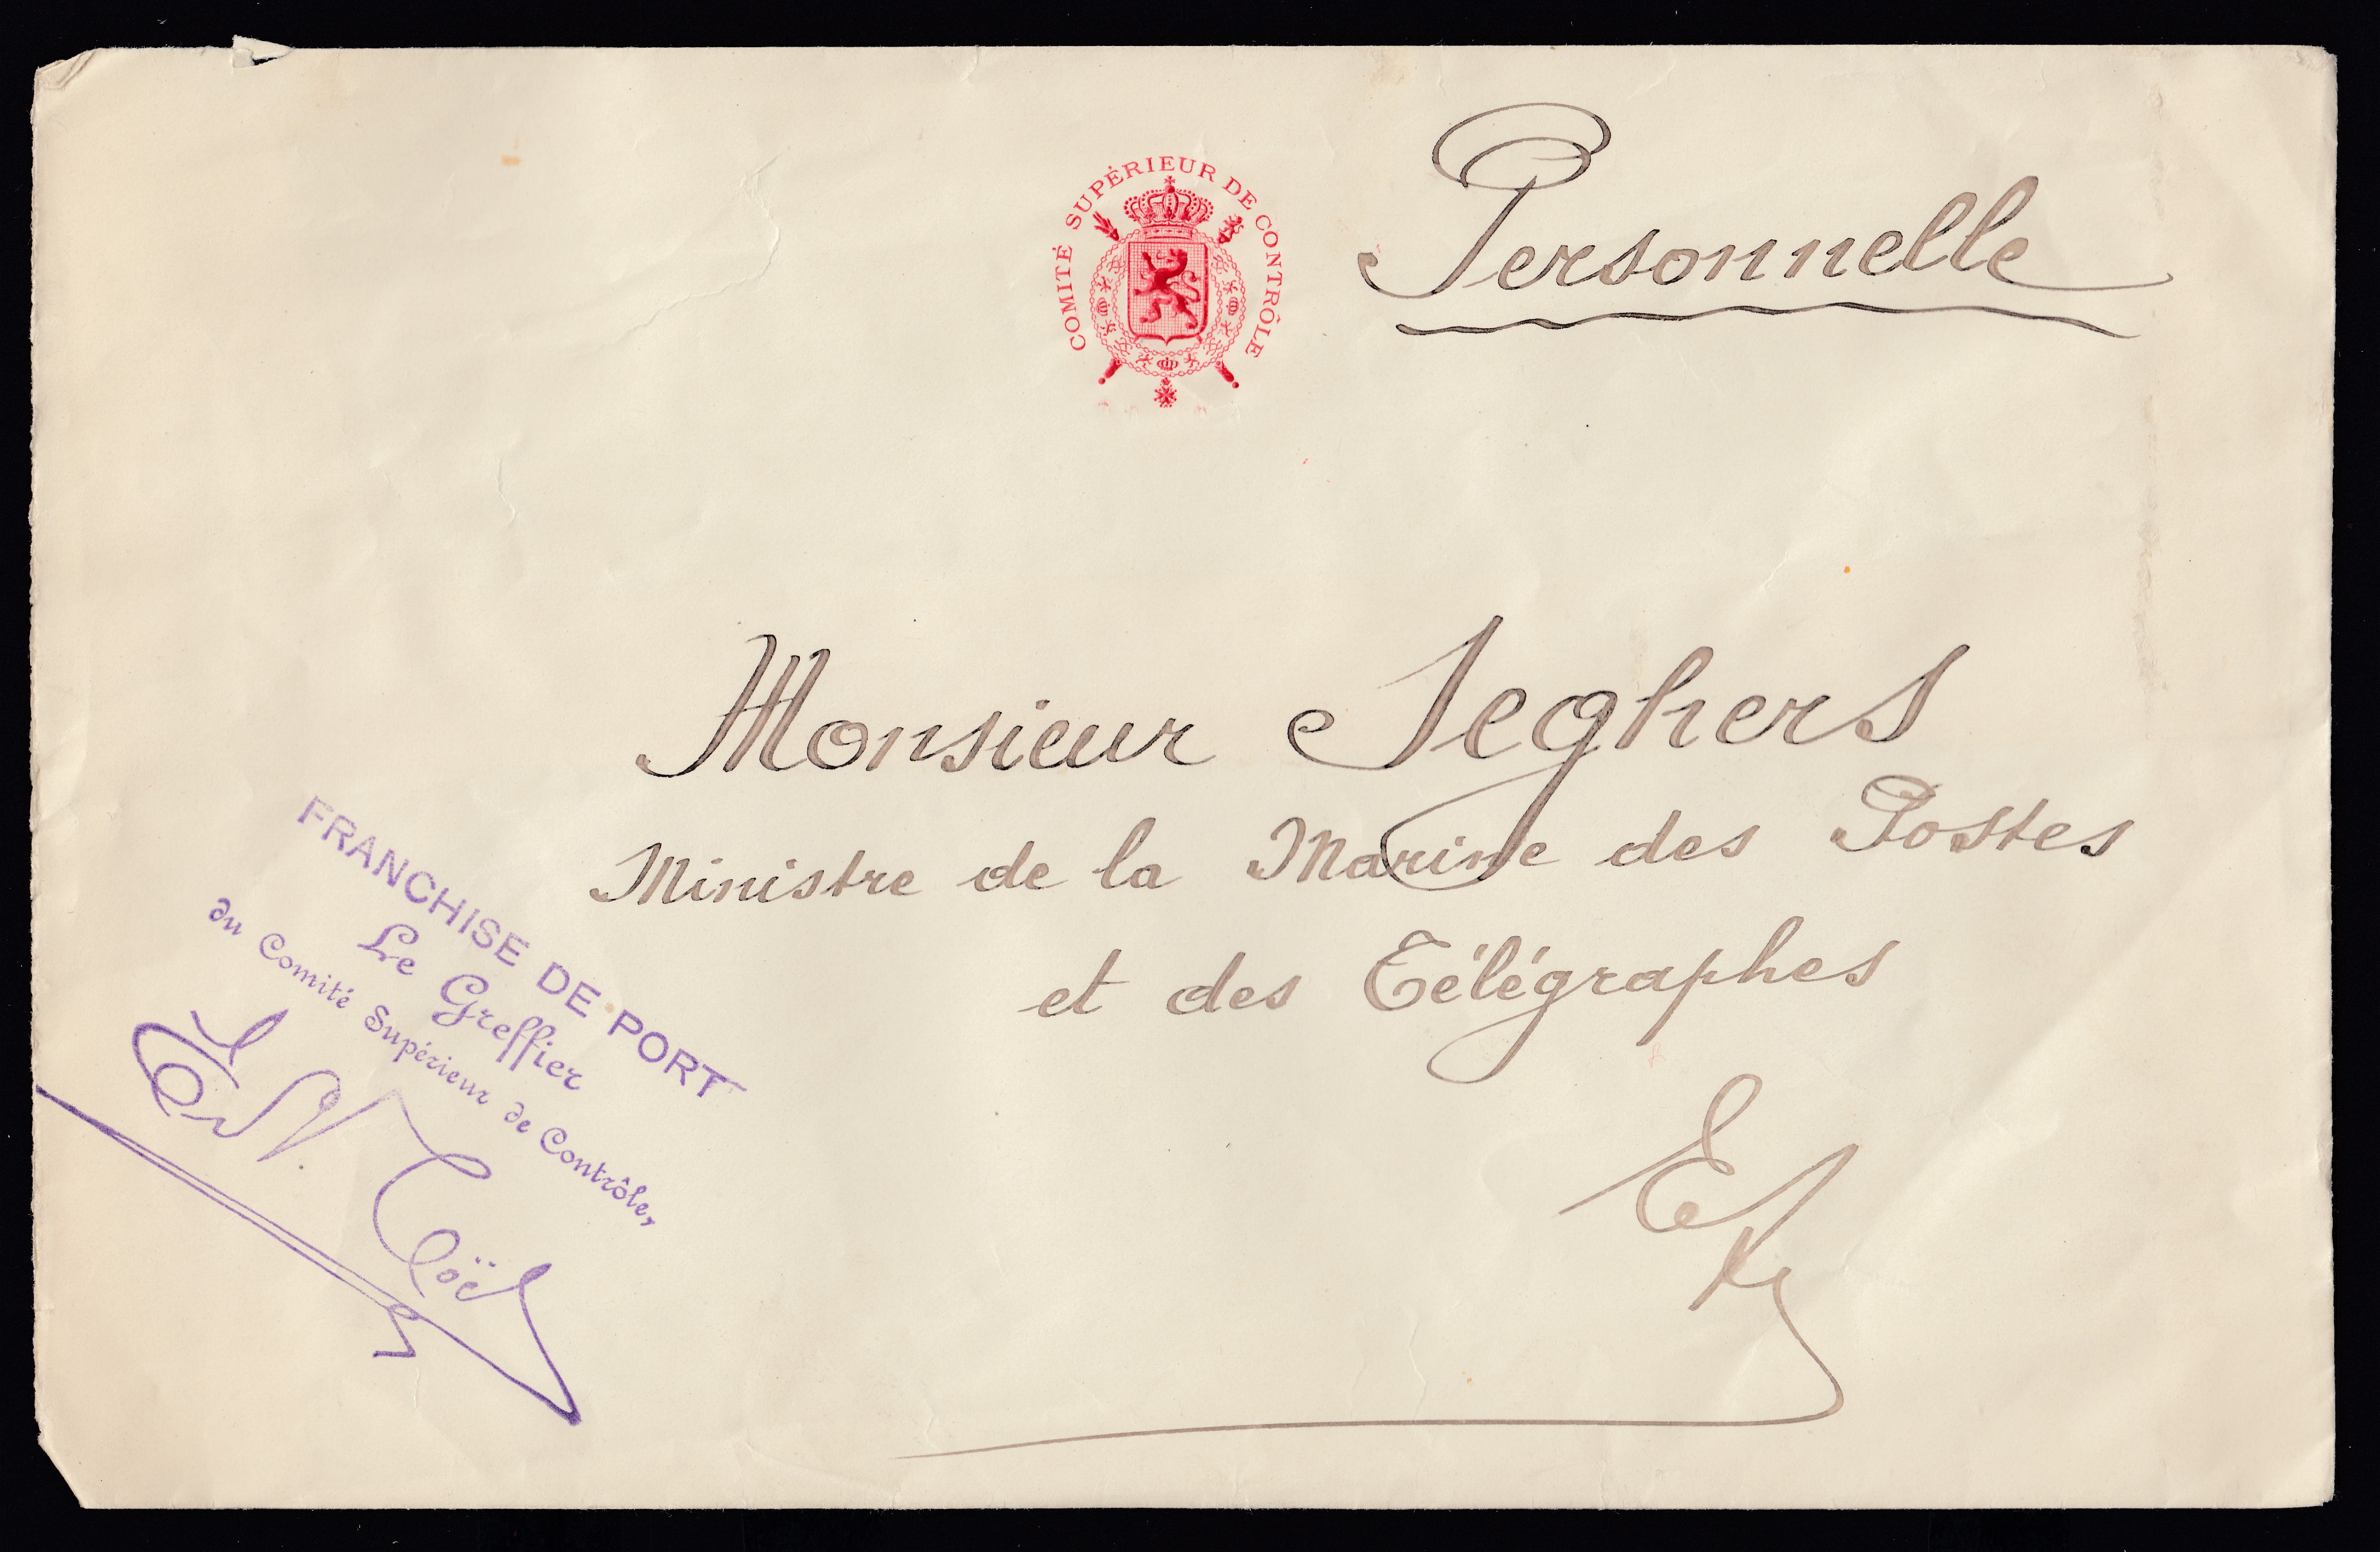 COMITÉ SUPÉRIEUR DE CONTRÔLE
Personnelle
Monsieur Seghers
Ministre de la Marine des Postes
et des Télégraphes
FRANCHISE DE PORT
Le Greffier
du Comité Supérieur de Contrôle,